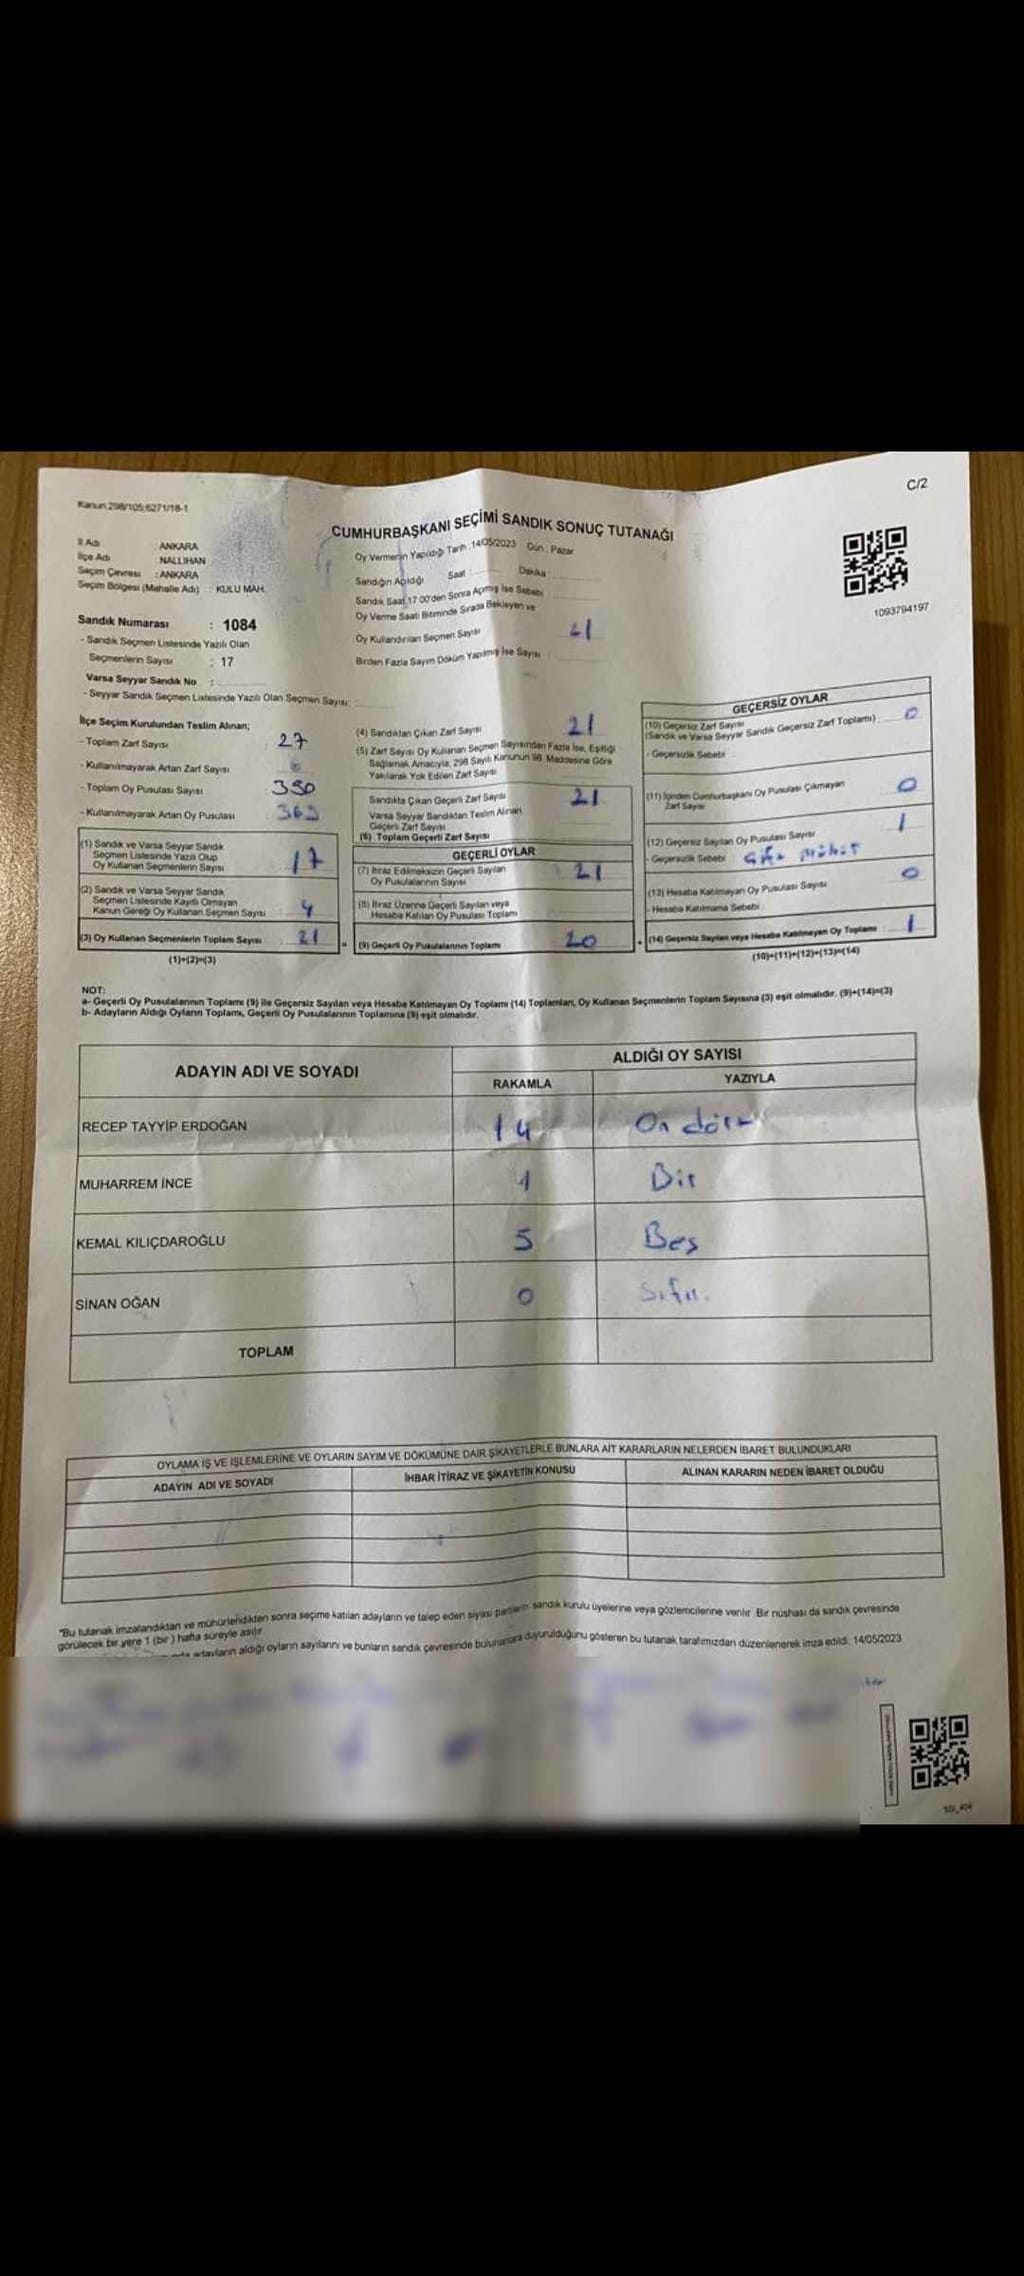 C/2
Kanun:298/105,6271/18-1
CUMHURBAŞKANI SEÇİMİ SANDIK SONUÇ TUTANAĞI
İl Adı : ANKARA
İlçe Adı NALLIHAN
Seçim Çevresi : ANKARA
Seçim Bölgesi (Mahalle Adı) : KULU MAH.
Oy Vermenin Yapıldığı Tarih :14/05/2023 Gün : Pazar
Sandığın Açıldığı Saat Dakika
Sandık Saat 17.00'den Sonra Açmış İse Sebebi
Oy Verme Saati Bitiminde Sırada Bekleyen ve
Oy Kullandırılan Seçmen Sayısı 21
Birden Fazla Sayım Döküm Yapılmış İse Sayısı :
1093794197
Sandık Numarası : 1084
- Sandık Seçmen Listesinde Yazılı Olan
Seçmenlerin Sayısı : 17
Varsa Seyyar Sandık No :
- Seyyar Sandık Seçmen Listesinde Yazılı Olan Seçmen Sayısı:
İlçe Seçim Kurulundan Teslim Alınan;
- Toplam Zarf Sayısı : 27
- Kullanılmayarak Artan Zarf Sayısı
- Toplam Oy Pusulası Sayısı 390
- Kullanılmayarak Artan Oy Pusulası : 369
(1) Sandık ve Varsa Seyyar Sandık
Seçmen Listesinde Yazılı Olup
Oy Kullanan Seçmenlerin Sayısı 17
(2) Sandık ve Varsa Seyyar Sandık
Seçmen Listesinde Kayıtlı Olmayan
Kanun Gereği Oy Kullanan Seçmen Sayısı 4
(3) Oy Kullanan Seçmenlerin Toplam Sayısı 21
(1)+(2)=(3)
(4) Sandıktan Çıkan Zarf Sayısı 21
(5) Zarf Sayısı Oy Kullanan Seçmen Sayısından Fazla İse, Eşitliği
Sağlamak Amacıyla, 298 Sayılı Kanunun 98. Maddesine Göre
Yakılarak Yok Edilen Zarf Sayısı
Sandıkta Çıkan Geçerli Zarf Sayısı 21
Varsa Seyyar Sandıktan Teslim Alınan
Geçerli Zarf Sayısı
(6) Toplam Geçerli Zarf Sayısı
GEÇERLİ OYLAR
(7) İtiraz Edilmeksizin Geçerli Sayılan
Oy Pusulalarının Sayısı 21
(8) İtiraz Üzerine Geçerli Sayılan veya
Hesaba Katılan Oy Pusulası Toplamı
(9) Geçerli Oy Pusulalarının Toplamı 20
GEÇERSİZ OYLAR
(10) Geçersiz Zarf Sayısı
(Sandık ve Varsa Seyyar Sandık Geçersiz Zarf Toplamı) : 0
- Geçersizlik Sebebi :
(11) İçinden Cumhurbaşkanı Oy Pusulası Çıkmayan
Zarf Sayısı 0
(12) Geçersiz Sayılan Oy Pusulası Sayısı 1
- Geçersizlik Sebebi : Çift Mühür
(13) Hesaba Katılmayan Oy Pusulası Sayısı 0
- Hesaba Katılmama Sebebi :
(14) Geçersiz Sayılan veya Hesaba Katılmayan Oy Toplamı : 1
(10)+(11)+(12)+(13)=(14)
NOT:
a- Geçerli Oy Pusulalarının Toplamı (9) ile Geçersiz Sayılan veya Hesaba Katılmayan Oy Toplamı (14) Toplamları, Oy Kullanan Seçmenlerin Toplam Sayısına (3) eşit olmalıdır. (9)+(14)=(3)
b- Adayların Aldığı Oyların Toplamı, Geçerli Oy Pusulalarının Toplamına (9) eşit olmalıdır.
ADAYIN ADI VE SOYADI ALDIĞI OY SAYISI
RAKAMLA YAZIYLA
RECEP TAYYİP ERDOĞAN 14 On dört
MUHARREM İNCE 1 Bir
KEMAL KILIÇDAROĞLU 5 Beş
SİNAN OĞAN 0 Sıfır.
TOPLAM
OYLAMA İŞ VE İŞLEMLERİNE VE OYLARIN SAYIM VE DÖKÜMÜNE DAİR ŞİKAYETLERLE BUNLARA AİT KARARLARIN NELERDEN İBARET BULUNDUKLARI
ADAYIN ADI VE SOYADI İHBAR İTİRAZ VE ŞİKAYETİN KONUSU ALINAN KARARIN NEDEN İBARET OLDUĞU
"Bu tutanak imzalandıktan ve mühürlendikten sonra seçime katılan adayların ve talep eden siyasi partilerin sandık kurulu üyelerine veya gözlemcilerine verilir. Bir nüshası da sandık çevresinde
görülecek bir yere 1 (bir ) hafta süreyle asılır.
adayların aldığı oyların sayılarını ve bunların sandık çevresinde bulunanlara duyurulduğunu gösteren bu tutanak tarafımızdan düzenlenerek imza edildi. 14/05/2023